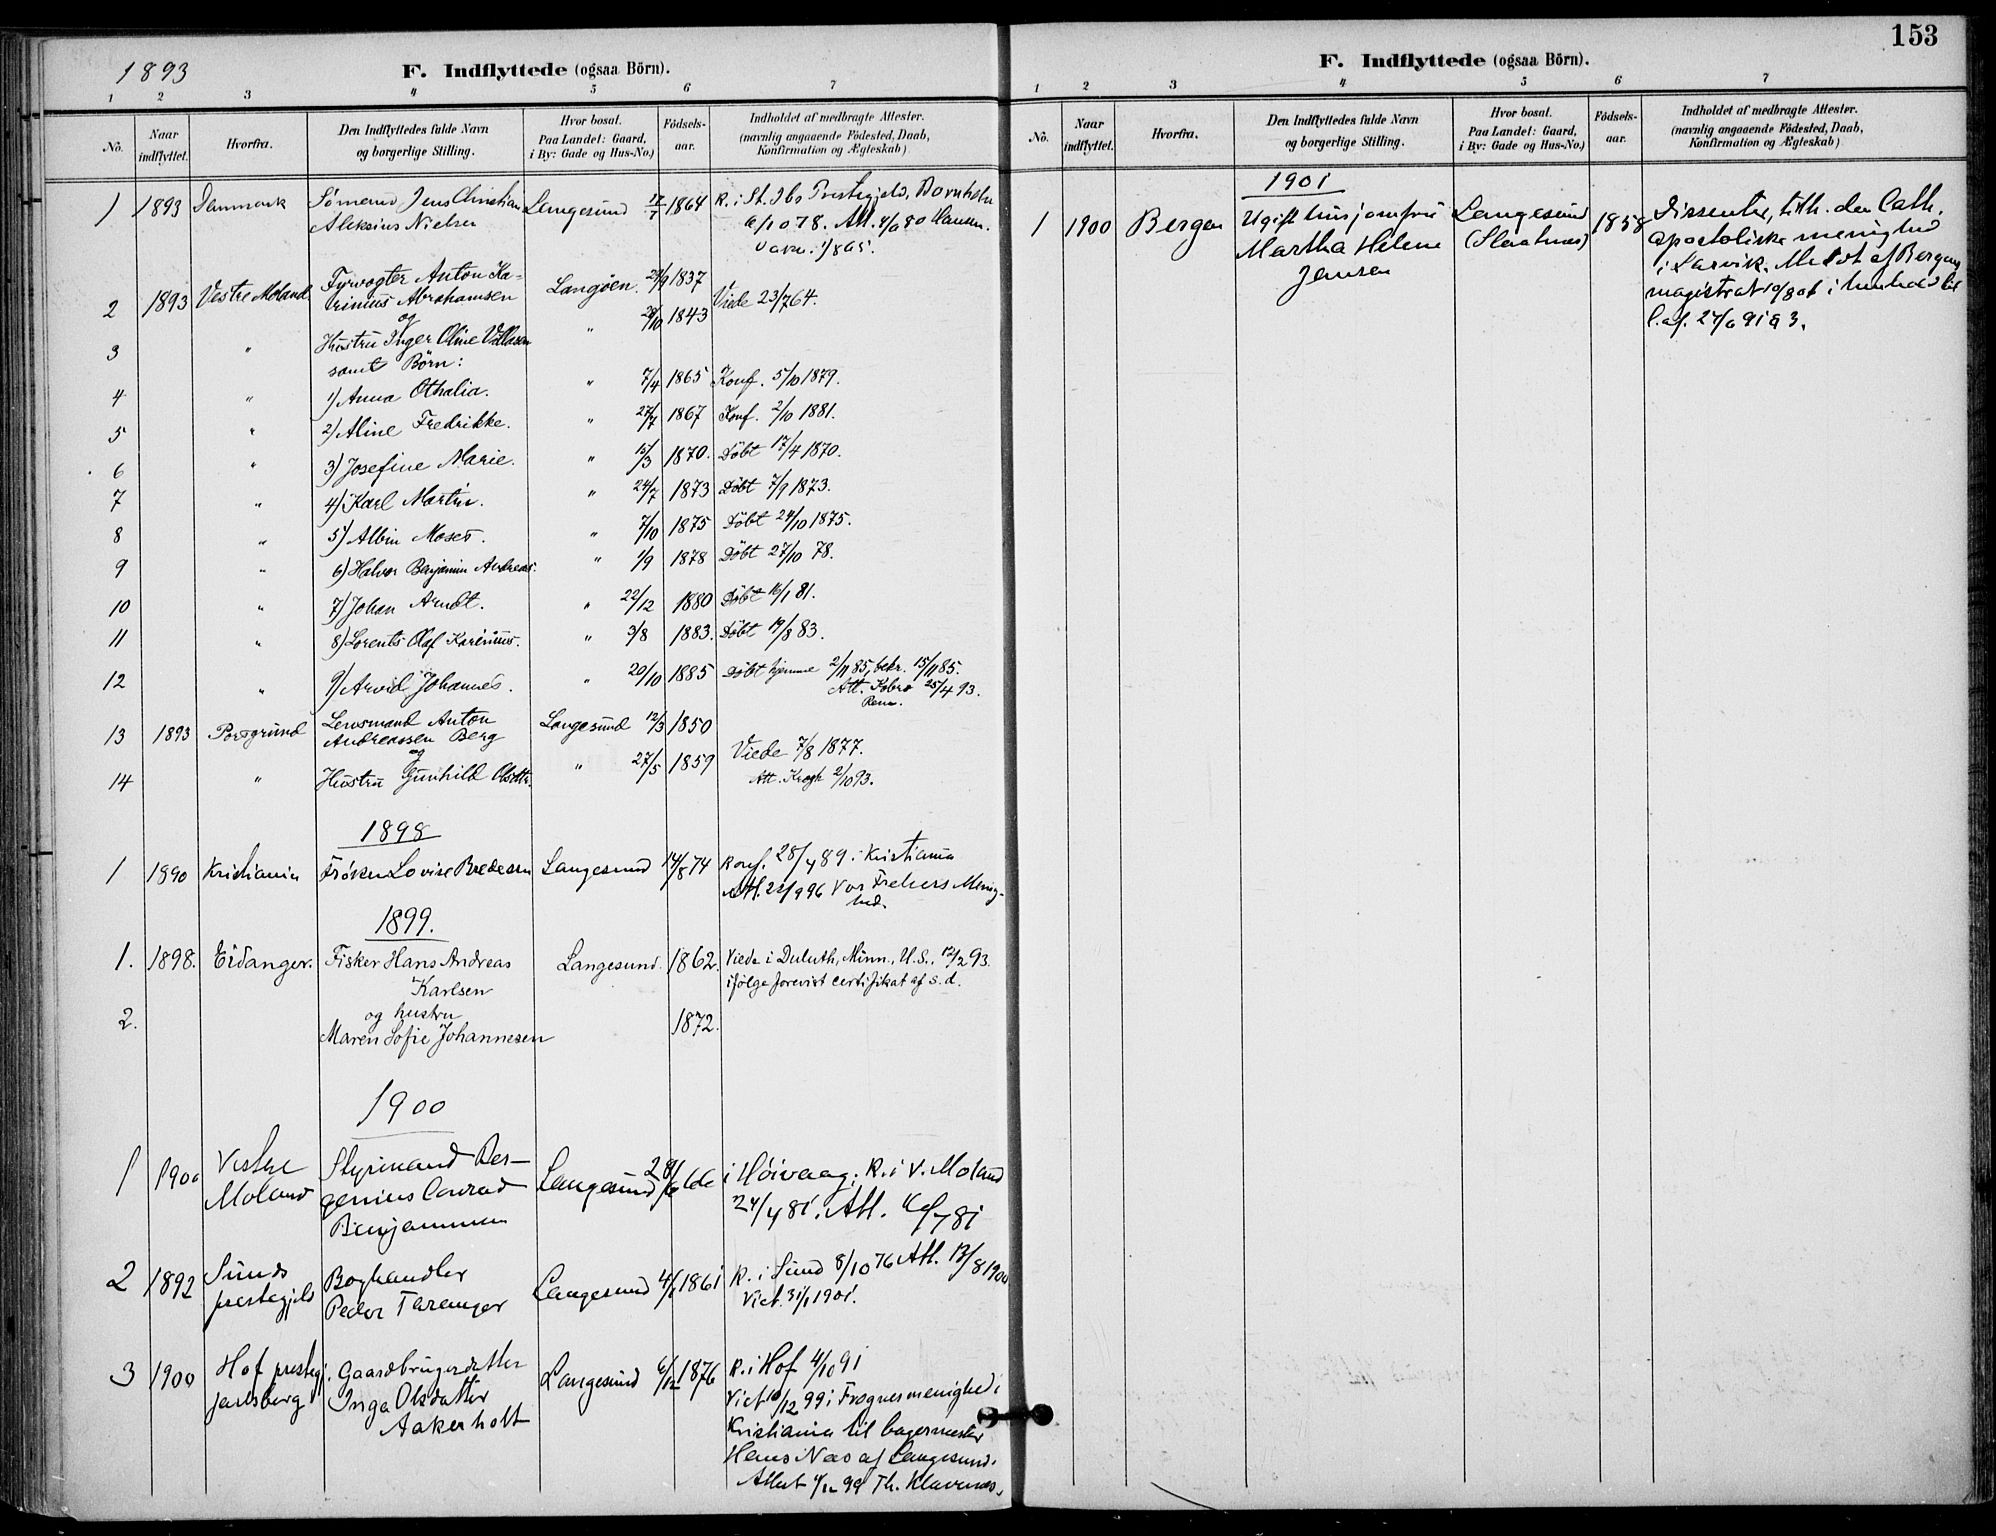 153
1893
F. Indflyttede (ogsaa Börn).
1 2 3 4 5 6 7
No.
Naar indflyttet.
Hvorfra.
Den Indflyttedes fulde Navn
og borgerlige Stilling.
Hvor bosat.
Paa Landet: Gaard,
i By: Gade og Hus-No.)
Födsels-
aar.
Indholdet af medbragte Attester.
(navnlig angaaende Födested, Daab,
Konfirmation og Ægteskab)
1 1893 Danmark Sömand Jens Christian Langesund 17/7 1864 K. i St. Ibs Prestegjeld, Bornholm
Aleksius Nielsen 6/10 78. Att. 4/6 80 Hansen.
2 1893 Vestre Moland Fyrvogter Anton Ka- Langöen. 29/9 1837
trinius Abrahamsen Viede 23/7 64.
og " 28/10 1843
3 " Hustru Inger Oline
samt Börn:
4 " 1) Anna Othalia. " 7/4 1865 Konf. 5/10 1879.
5 " 2) Aline Fredrikke. " 27/7 1867 Konf. 2/10 1881.
6 " 3) Josefine Marie. " 15/3 1870. Döbt 17/4 1870.
7 " 4) Karl Martin. " 24/7 1873 Döbt 7/9 1873.
8 " 5) Albin Moses. " 7/10 1875 Döbt 24/10 1875.
9 " 6) Halvor Benjamin Andreas. " 1/9 1878 Döbt 27/10 78.
10 " 7) Johan Arndt. " 22/12 1880 Döbt 16/1 81.
11 " 8) Lorents Olaf Karinius. " 3/8 1883. Döbt 19/8 83.
12 " 9) Arvid Johannes. " 20/10 1885 Döbt hjemme 2/11 85, bekr. 15/11 85.
Att. Kobro 25/4 93.
13 1893 Porsgrund Lensmand Anton Langesund 12/3 1850
Andreassen Berg
og Viede 7/8 1877.
14 " Hustru Gunhild Olsdtr. " 27/5 1859
Att. Krogh 2/10 93.
1898
1 1890 Kristiania Fröken Lovise Bredesen Langesund 14/8 74 Konf. 28/4 89 i Kristiania
Att. 22/9 96 Vor Frelsers Menig-
hed.
1899.
1. 1898. Eidanger. Fisker Hans Andreas Langesund. 1862. Viede i Duluth, Minn., U.S., 12/2 93.
Karlsen ifölge forevist certifikat af s.d.
og hustru
2. Maren Sofie Johannesen 1872.
1900
1 1900 Vestre Styrmand Ber- Langesund 28/6 66 i Höivaag; K. i V. Moland
Moland genius Conrad 24/4 81. Att.
Benjaminsen
2 1892 Sunds Boghandler Langesund 4/1 1861 K. i Sund 8/10 76 Att. 13/8 1900
prestegjeld Peder Taranger Viet. 31/1 1901.
3 1900 Hof prestegj. Gaardbrugerdatter Langesund 6/12 1876 K. i Hof 4/10 91
Jarlsberg Inga Olsdatter Viet 10/12 99 i Frognermenighed i
Aakerholt Kristiania til bagermester
Hans Næs af Langesund.
Attest 4/12 99 Th. Klaveness.
F. Indflyttede (ogsaa Börn).
1 2 3 4 5 6 7
No.
Naar indflyttet.
Hvorfra.
Den Indflyttedes fulde Navn
og borgerlige Stilling.
Hvor bosat.
Paa Landet: Gaard,
i By: Gade og Hus-No.)
Födsels-
aar.
Indholdet af medbragte Attester.
(navnlig angaaende Födested, Daab,
Konfirmation og Ægteskab)
1901
1 1900 Bergen Ugift husjomfru Langesund 1858 Dissenter, tilh. den Cath.
Martha Helene apostoliske menighed
Jensen i Larvik. Meldt af Bergens
magistrat 10/8 01 i henhold til
l. af. 27/6 91 § 3.